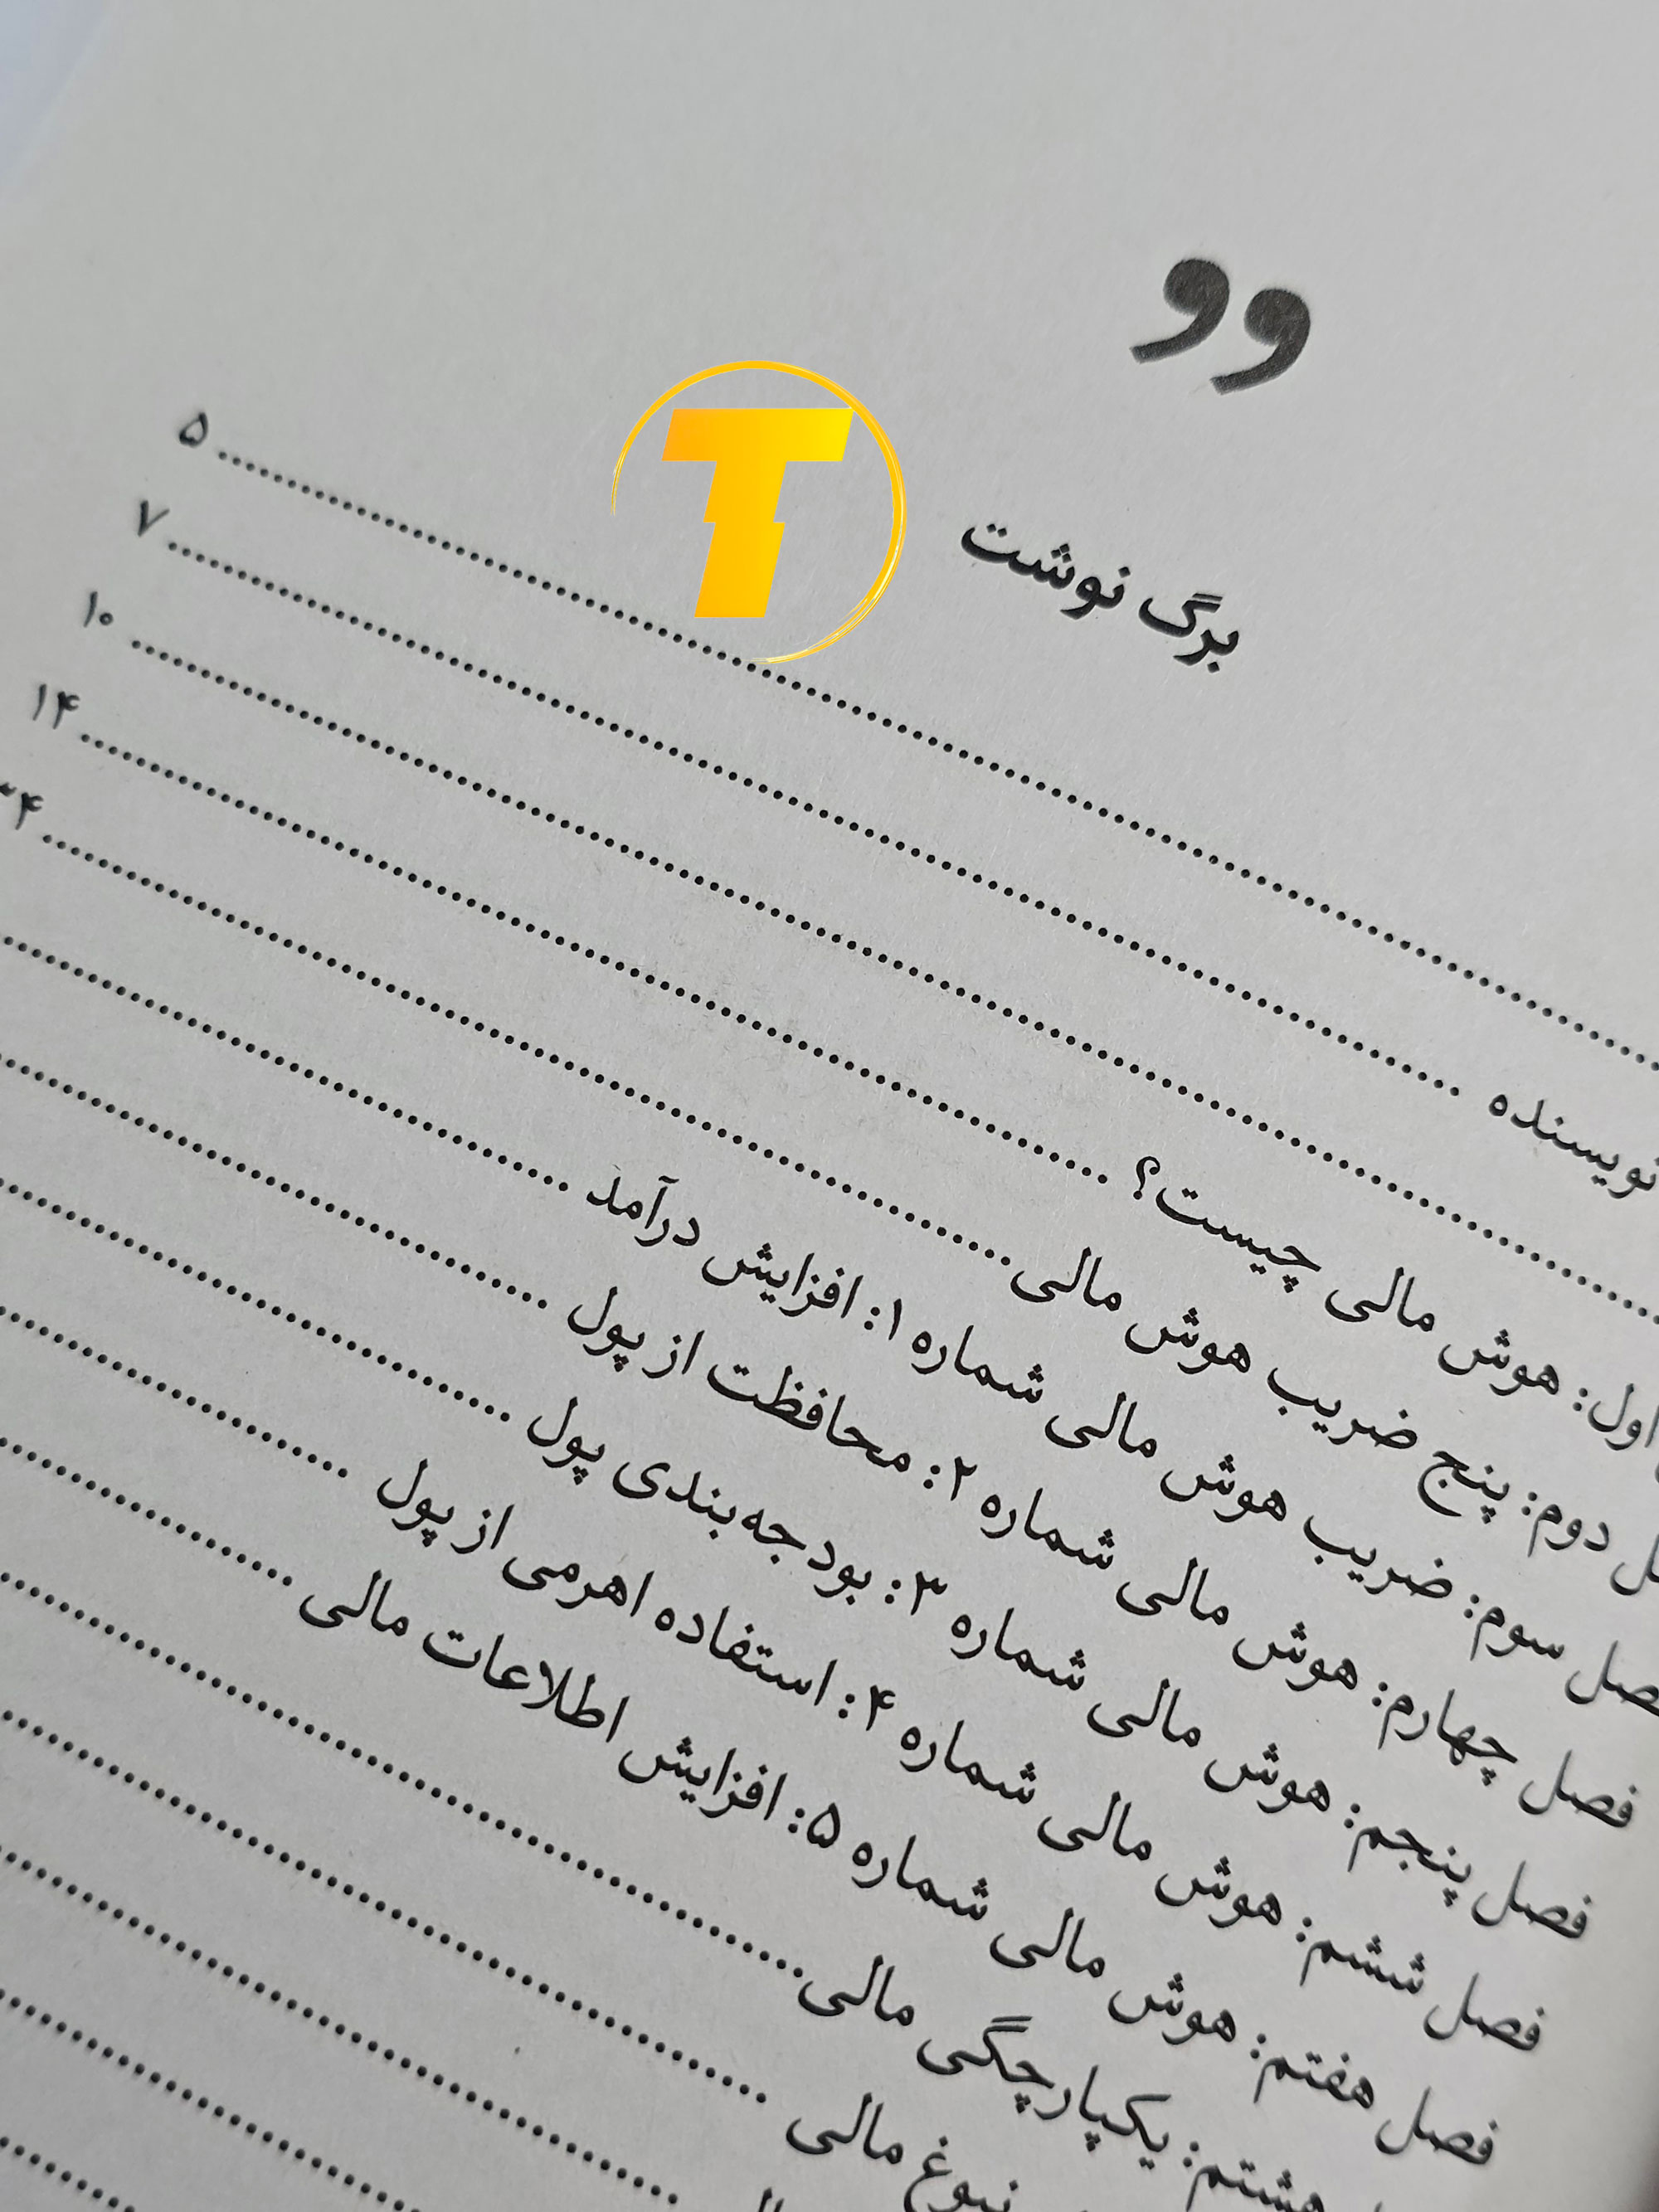 برگ نوشت
۵
نویسنده ۷
۱۰
اول: هوش مالی چیست؟ ۱۴
دوم: پنج ضریب هوش مالی ۳۴
سوم: ضریب هوش مالی شماره ۱: افزایش درآمد
فصل چهارم: هوش مالی شماره ۲: محافظت از پول
فصل پنجم: هوش مالی شماره ۳: بودجه‌بندی پول
فصل ششم: هوش مالی شماره ۴: استفاده اهرمی از پول
فصل هفتم: هوش مالی شماره ۵: افزایش اطلاعات مالی
هشتم: یکپارچگی مالی
نبوغ مالی
T